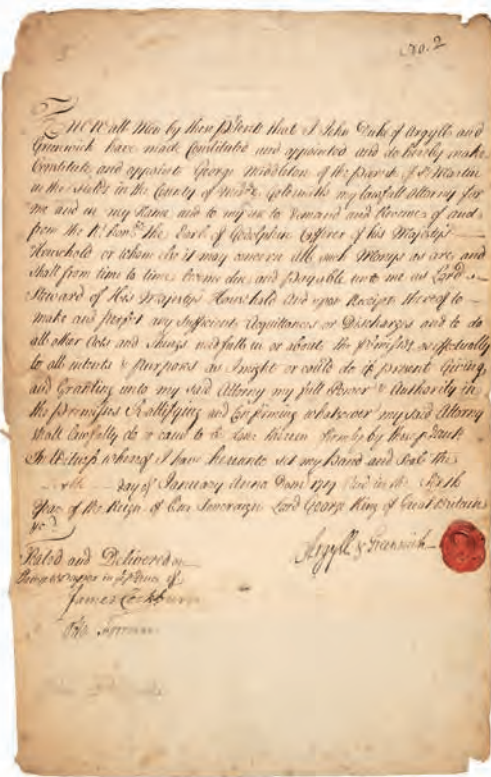 No. 2
KNOW all Men by these Presents that I John Duke of Argyll and
Greenwich have made Constituted and appointed and do hereby make
Constitute and appoint George Middleton of the Parish of St Martin
in the Fields in the County of Midd. Goldsmith my lawfull Attorney for
me and in my Name and to my use to Demand and Receive of and
from the Rt. Honble. the Earle of Godolphin Cofferer of his Majestys
Household or whom else it may concern all such Moneys as are and
shall from time to time become due and payable unto me as Lord
Steward of His Majestys Household And upon Receipt thereof to
make and any Sufficient Acquittances or Discharges and to do
all other Acts and things needfull in or about the premisses as effectually
to all intents & purposes as I might or could do if present Giving
and Granting unto my said Attorney my full Power & Authority in
the premisses Rattifying and Confirming whatsoever my said Attorney
shall lawfully do or cause to be done therein firmly by these presents
In Witness whereof I have hereunto set my Hand and Seale the
day of January Anno Dom 1719 And in the Sixth
Year of the Reign of Our Sovereign Lord George King of Great Britain
&c.
Argyll & Greenwich
Sealed and Delivered on
in presence of
James Cockburn